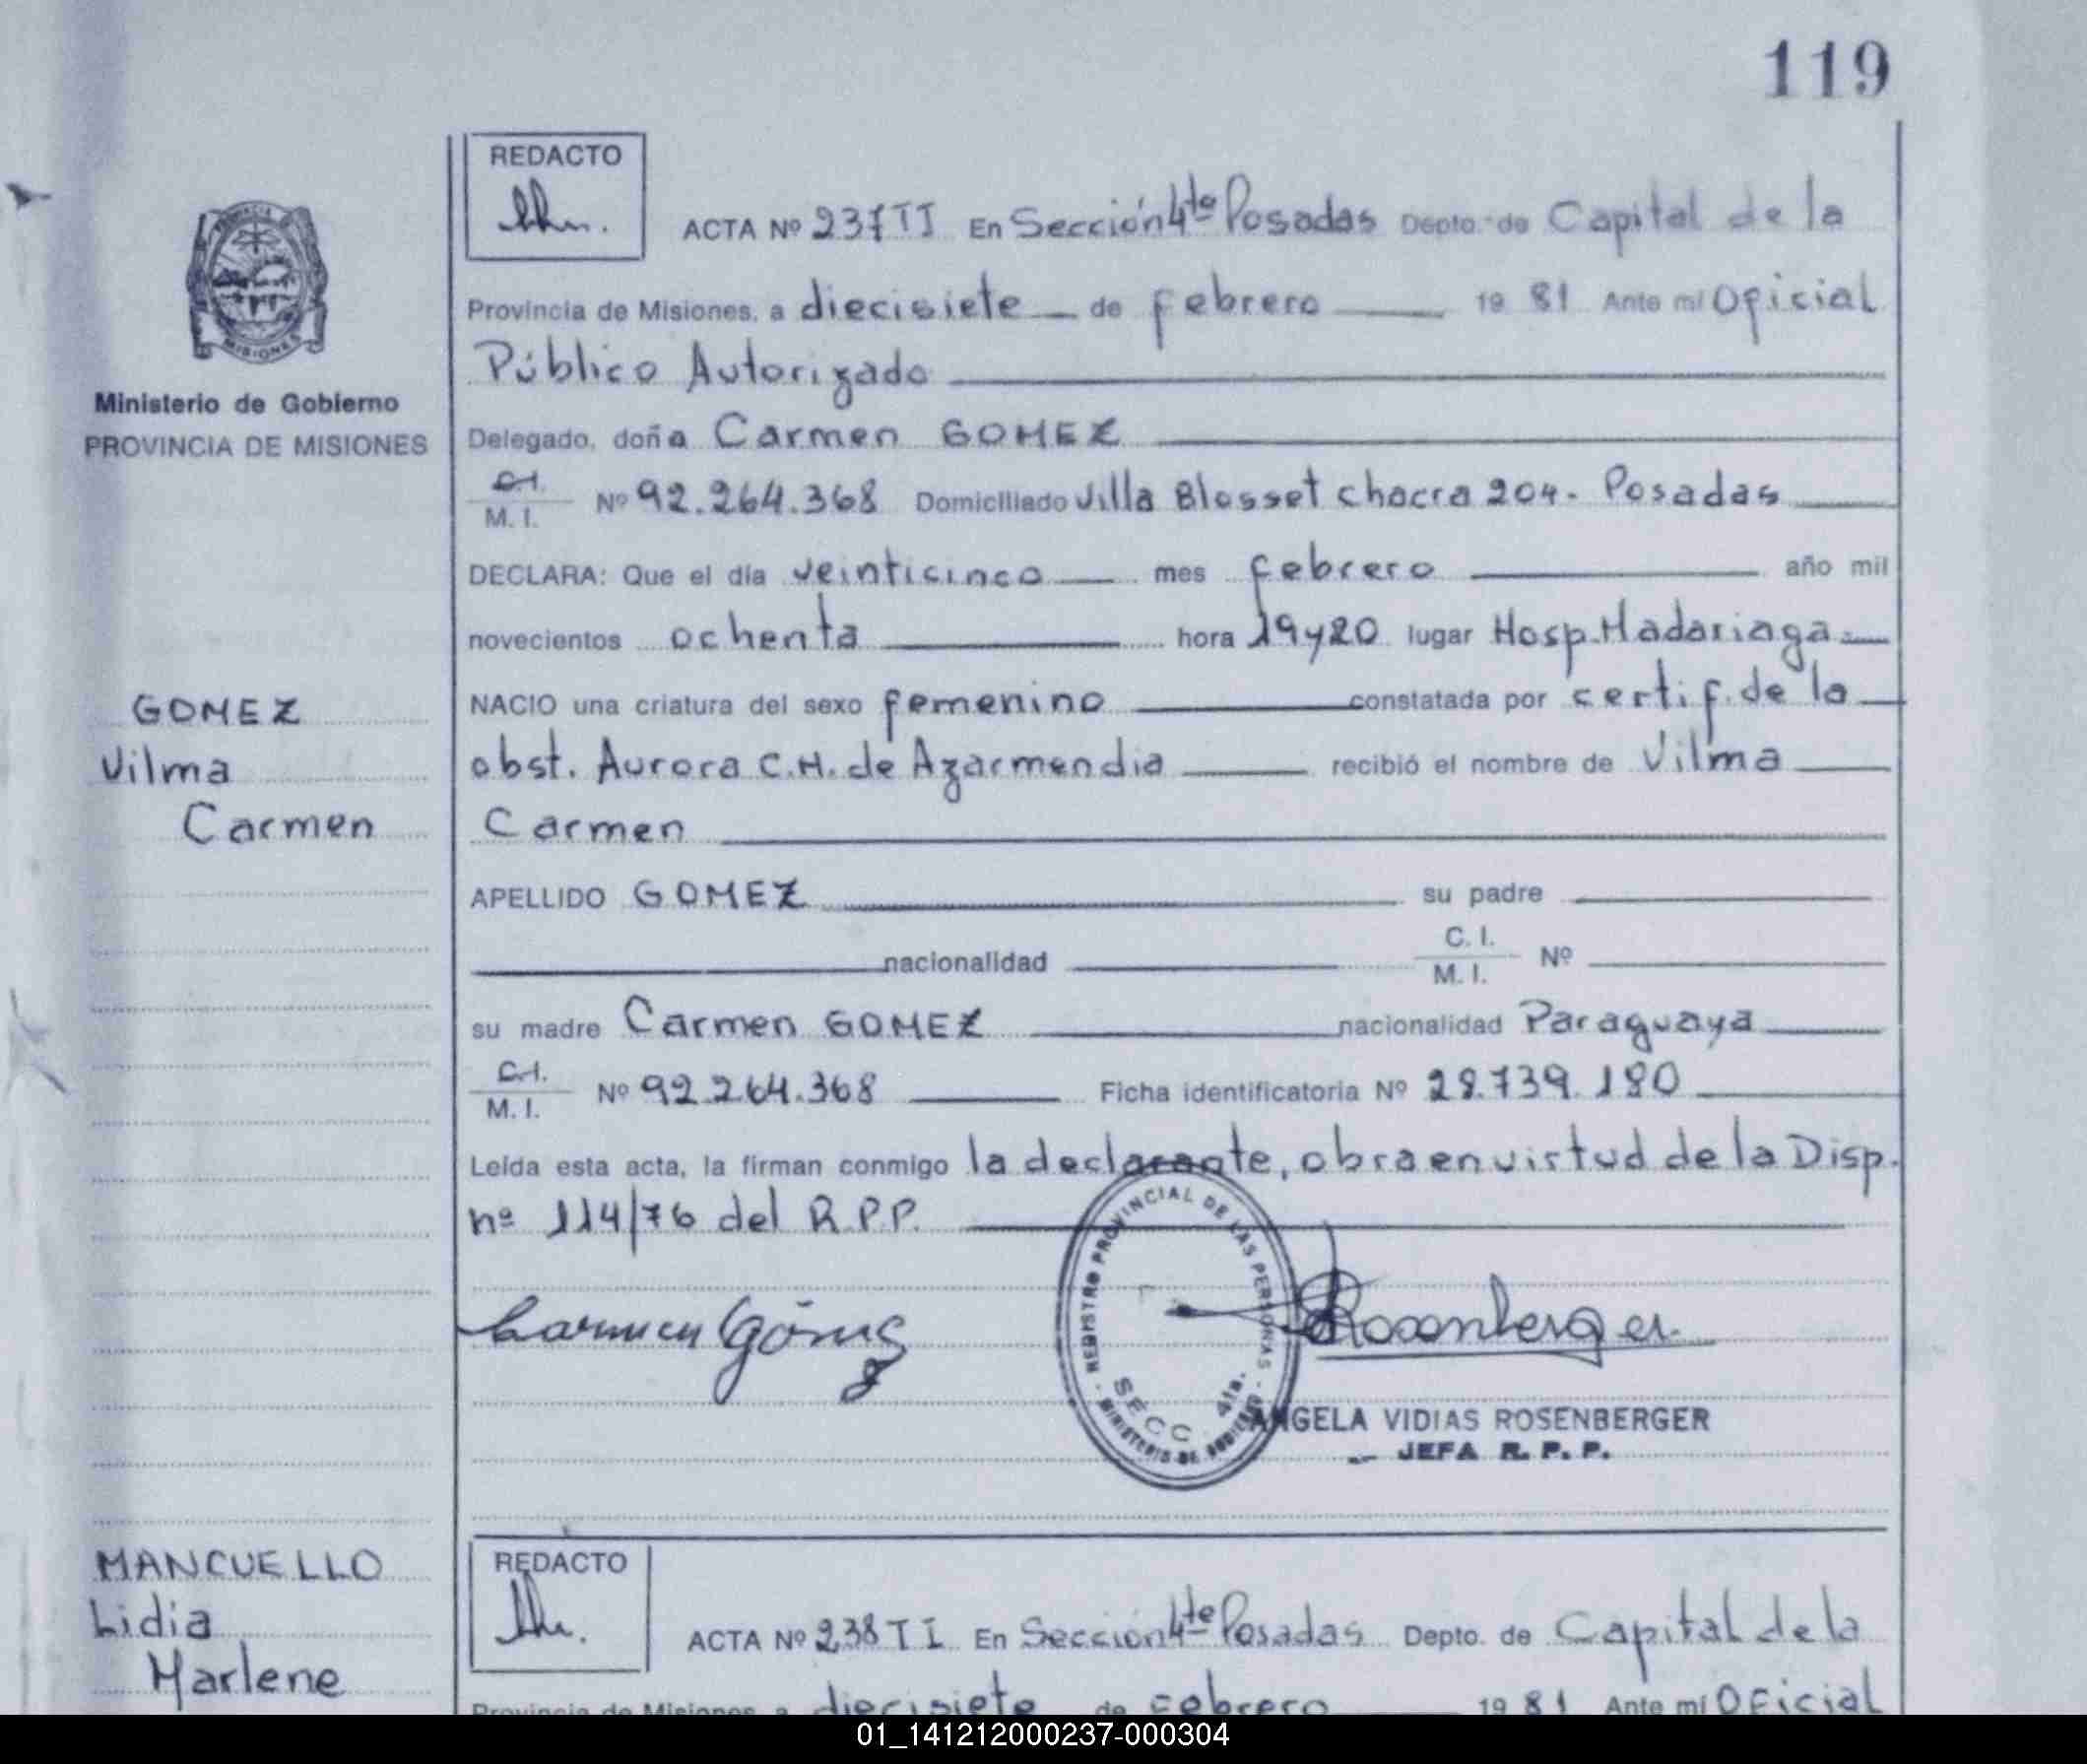 119
REDACTO
ACTA Nº 237 TI En Sección 4ta Posadas Depto. de Capital de la
Provincia de Misiones, a diecisiete de febrero 19 81 Ante mí Oficial
Público Autorizado
Ministerio de Gobierno
PROVINCIA DE MISIONES
Delegado, doña Carmen GOMEZ
C.I.
M. I. Nº 92.264.368 Domiciliado Villa Blosset chacra 204- Posadas
DECLARA: Que el día veinticinco mes febrero año mil
novecientos ochenta hora 19y20 lugar Hosp. Madariaga
GOMEZ
Vilma
Carmen
NACIO una criatura del sexo femenino constatada por certif. de la
obst. Aurora C.M. de Azarmendia recibió el nombre de Vilma
Carmen
APELLIDO GOMEZ su padre
nacionalidad C. I.
M. I. Nº
su madre Carmen GOMEZ nacionalidad Paraguaya
C.I.
M. I. Nº 92.264.368 Ficha identificatoria Nº 28.739.180
Leída esta acta, la firman conmigo la declarante, obra en virtud de la Disp.
nº 114/76 del R.P.P.
Carmen Gómez
REGISTRO PROVINCIAL DE LAS PERSONAS
SECC 4ta.
MINISTERIO DE GOBIERNO
Rosenberger
ANGELA VIDIAS ROSENBERGER
JEFA R. P. P.
MANCUELLO
Lidia
Marlene
REDACTO
ACTA Nº 238 TI En Sección 4ta Posadas Depto. de Capital de la
Provincia de Misiones a diecisiete de febrero 19 81 Ante mí Oficial
01_141212000237-000304